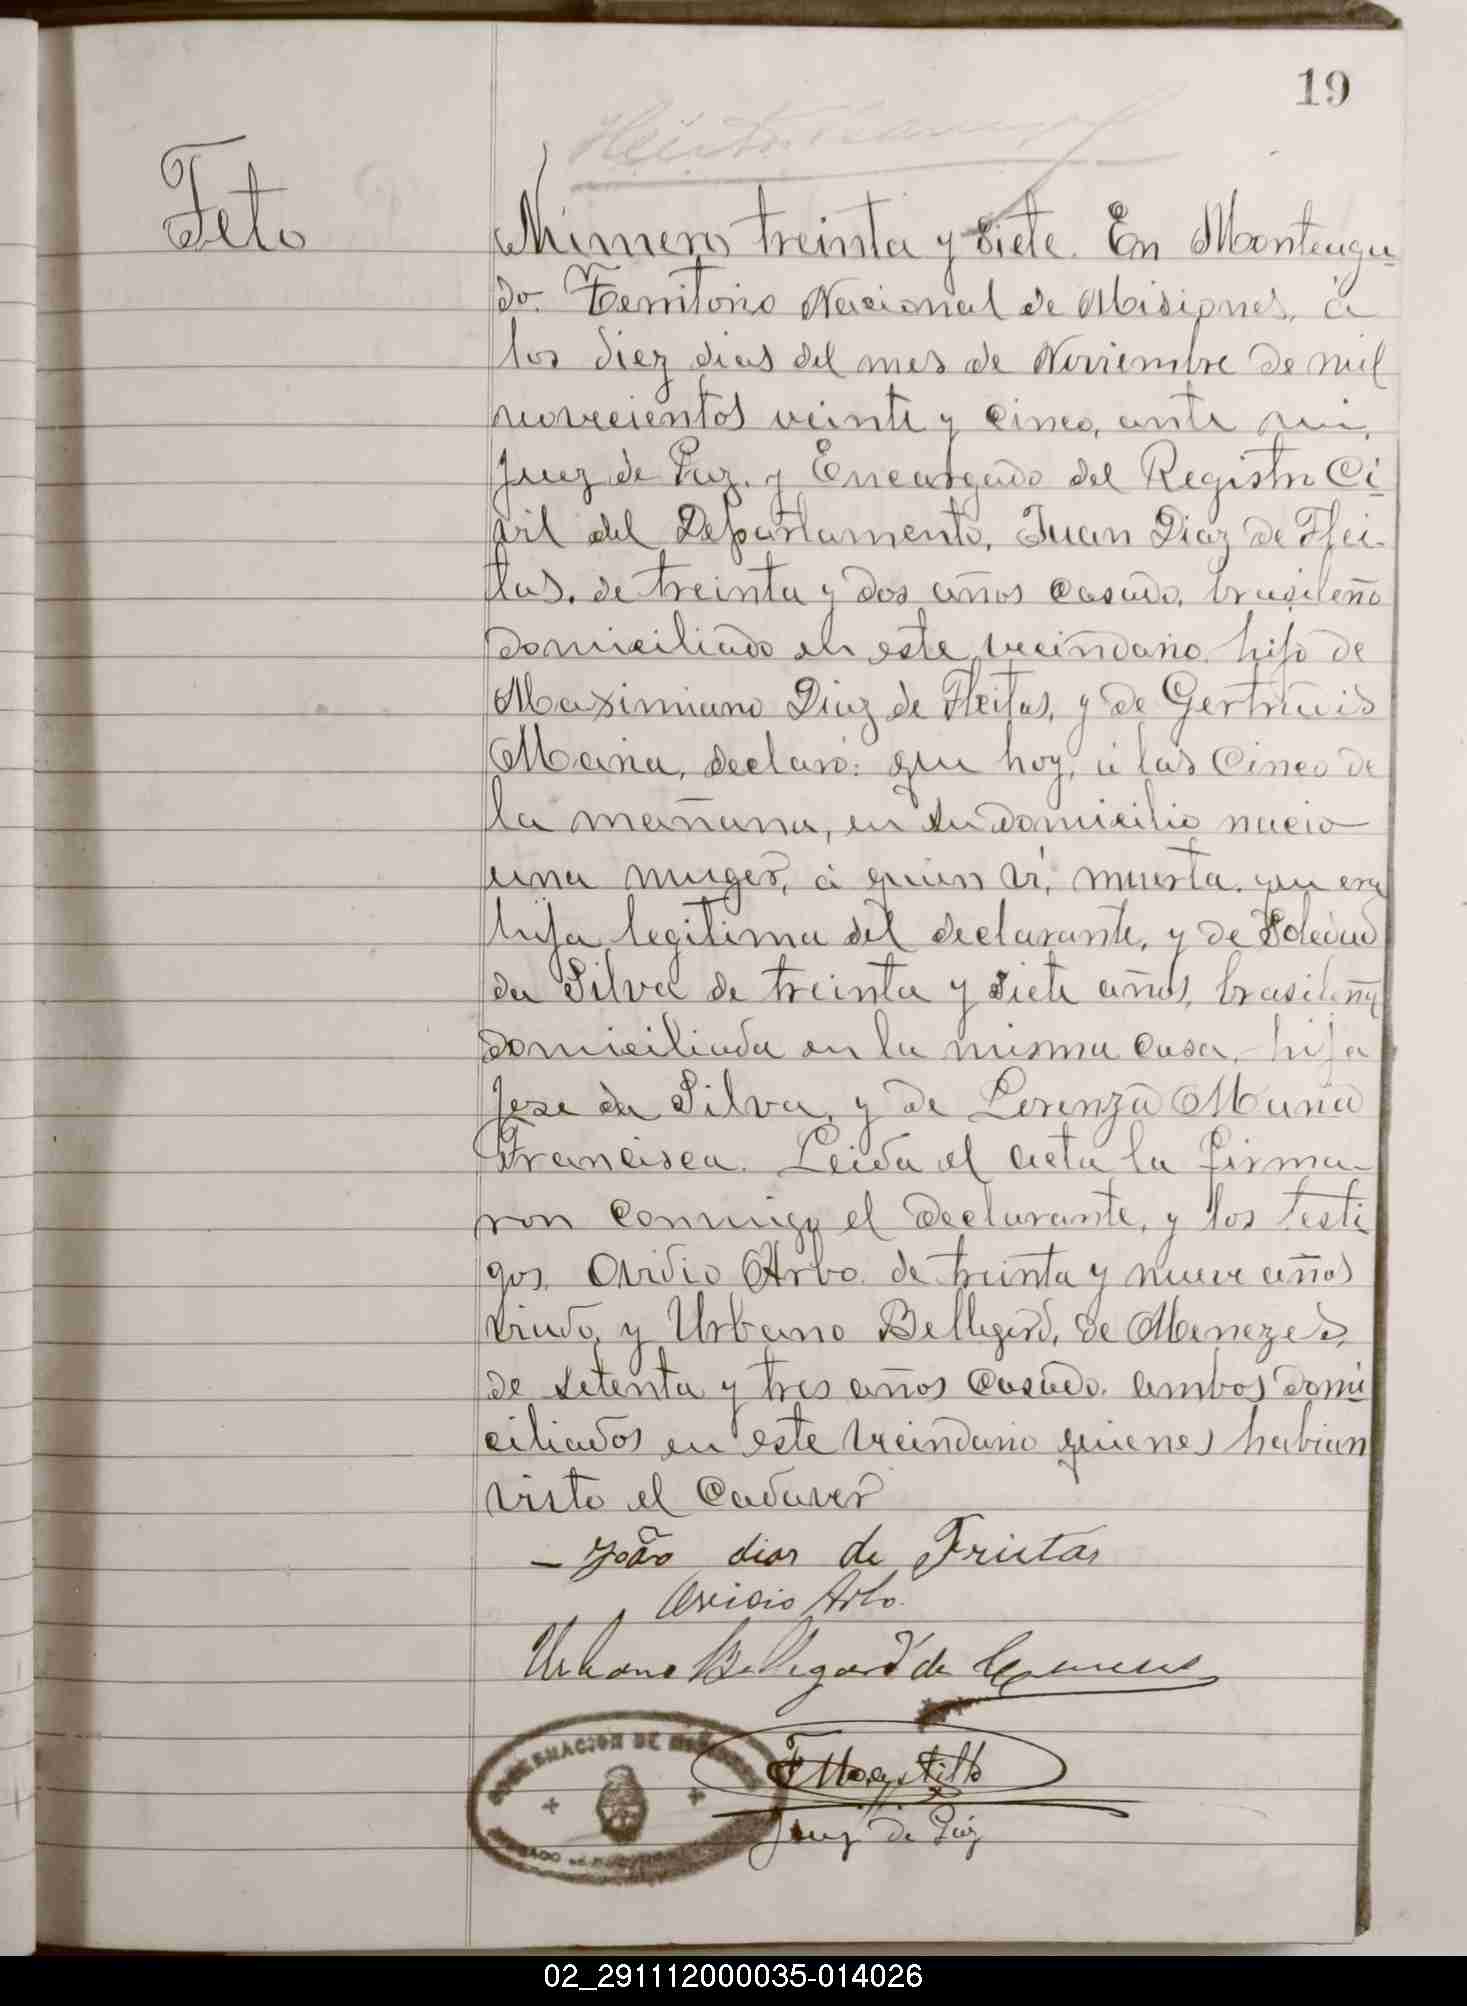 19
Feto
Número treinta y siete. En Monteagu-
do. Territorio Nacional de Misiones, á
los diez dias del mes de Noviembre de mil
novecientos veinte y cinco, ante mi,
Juez de Paz. y Encargado del Registro Ci-
vil del Departamento, Juan Diaz de Flei-
tas. de treinta y dos años casado. brasileño
domiciliado en este vecindario. hijo de
Maximiano Diaz de Fleitas, y de Gertrudis
Maria, declaró: que hoy, á las cinco de
la mañana, en su domicilio nacio
una muger, á quien ví, muerta. que era
hija legitima del declarante, y de Soledad
da Silva de treinta y siete años, brasileña
domiciliada en la misma casa, hija
Jose da Silva, y de Lorenza Maria
Francisca. Leida el acta la firma-
ron conmigo el declarante, y los testi
gos. Ovidio Arbo. de treinta y nueve años
viudo, y Urbano Bellegard, de Menezes,
de setenta y tres años casado. ambos domi
ciliados en este vecindario quienes habian
visto el cadaver
- João dias de Frietas
Ovidio Arbo.
Urbano Bellegard de
GOBERNACION DE MISIONES
Juez de Paz
02_291112000035-014026